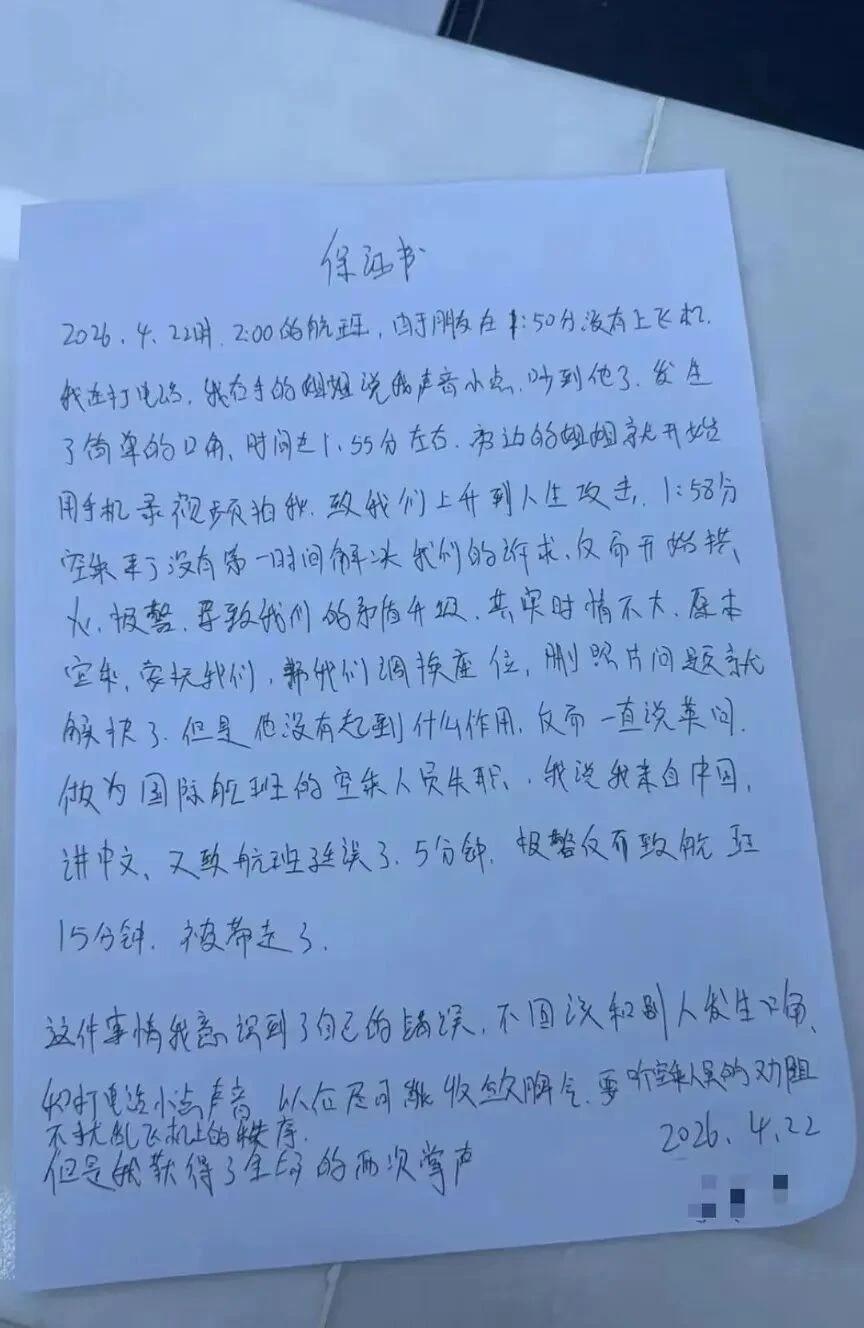 保证书
2026.4.22时.2:00的航班,由于朋友在1:50分没有上飞机.
我在打电话,我右手的姐姐说我声音小点,吵到他了.发生
了简单的口角,时间在1.55分左右.旁边的姐姐就开始
用手机录视频拍我.致我们上升到人生攻击.1:58分
空乘来了没有第一时间解决我们的诉求,反而开始拱
火,报警.导致我们的矛盾升级.其实时情不大.原本
空乘,安抚我们,帮我们调换座位,删照片问题就
解决了.但是他没有起到什么作用.反而一直说英问.
做为国际航班的空乘人员失职,我说我来自中国,
讲中文、又致航班延误了.5分钟.报警仅有致航班
15分钟.被带走了.
这件事情我意识到了自己的错误,不因该和别人发生口角、
和打电话小点声音 以后尽可能收敛脾气.要听空乘人员的劝阻
不扰乱飞机上的秩序.
2026.4.22
但是我获得了全场的两次掌声